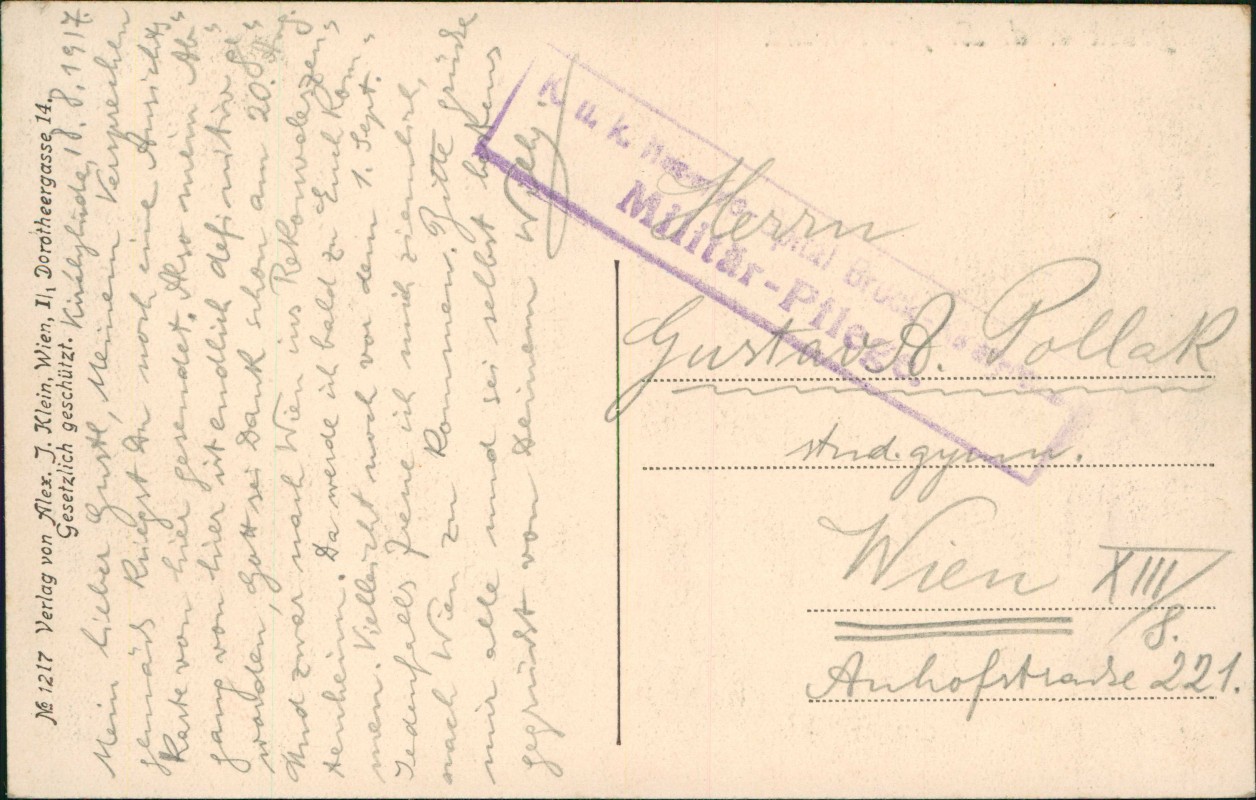 № 1217 Verlag von Alex. J. Klein, Wien, I/1 Dorotheergasse 14.
Gesetzlich geschützt.
Királyhida, 18. 8. 1917.
Mein lieber Gustl, Meinem Versprechen
gemäß kriegst Du noch eine Ansichts„
karte von hier gesendet. Also mein Ab„
gang von hier ist endlich definitiv ge„
worden, Gott sei Dank schon am 20. Aug.
Und zwar nach Wien ins Rekonvaleszen„
tenheim. Da werde ich bald zu Euch kom„
men. Vielleicht noch vor dem 1. Sept.
Jedenfalls freue ich mich ziemlich,
nach Wien zu kommen. Bitte grüße
mir alle und sei selbst bestens
gegrüßt von Deinem Willy.
K. u. k.
Militär-Pflege
Herrn
Gustav A. Pollak
stud. gymn.
Wien XIII/8.
Auhofstraße 221.